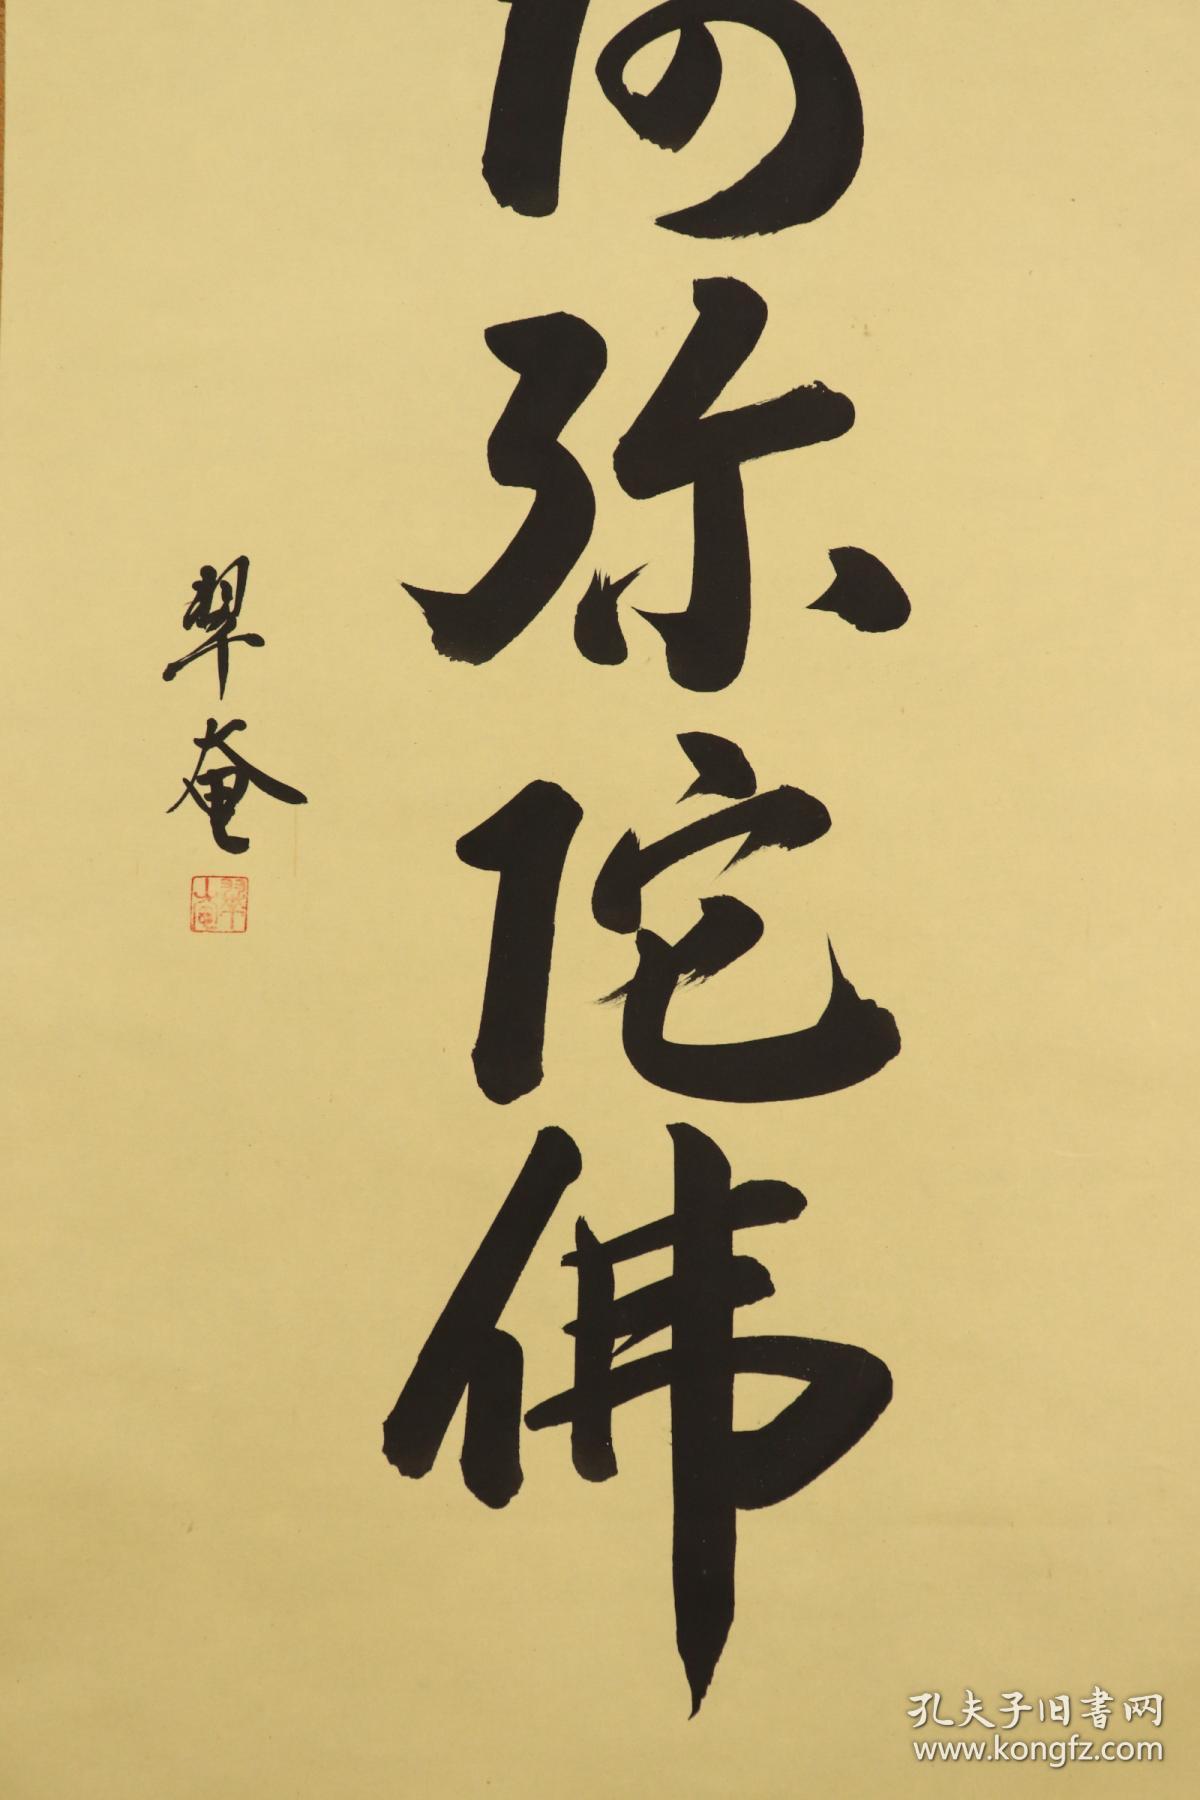 阿弥陀佛
翠奄
孔夫子旧書网
www.kongfz.com